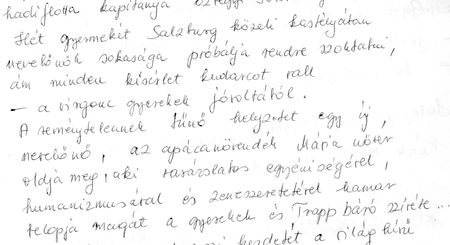 hadiflotta kapitánya
Hét gyermekét Salzburg közeli kastélyában
nevelőnők sokasága próbálja rendre szoktatni,
ám minden kísérlet kudarcot vall
– a virgonc gyerekek jóvoltából.
A reménytelennek tűnő helyzetet egy új
nevelőnő, az apácanövendék Mária nővér
oldja meg, aki varázslatos egyéniségével,
humanizmusával és zeneszeretetével hamar
belopja magát a gyerekek és Trapp báró szívébe...
kezdetét a világhírű